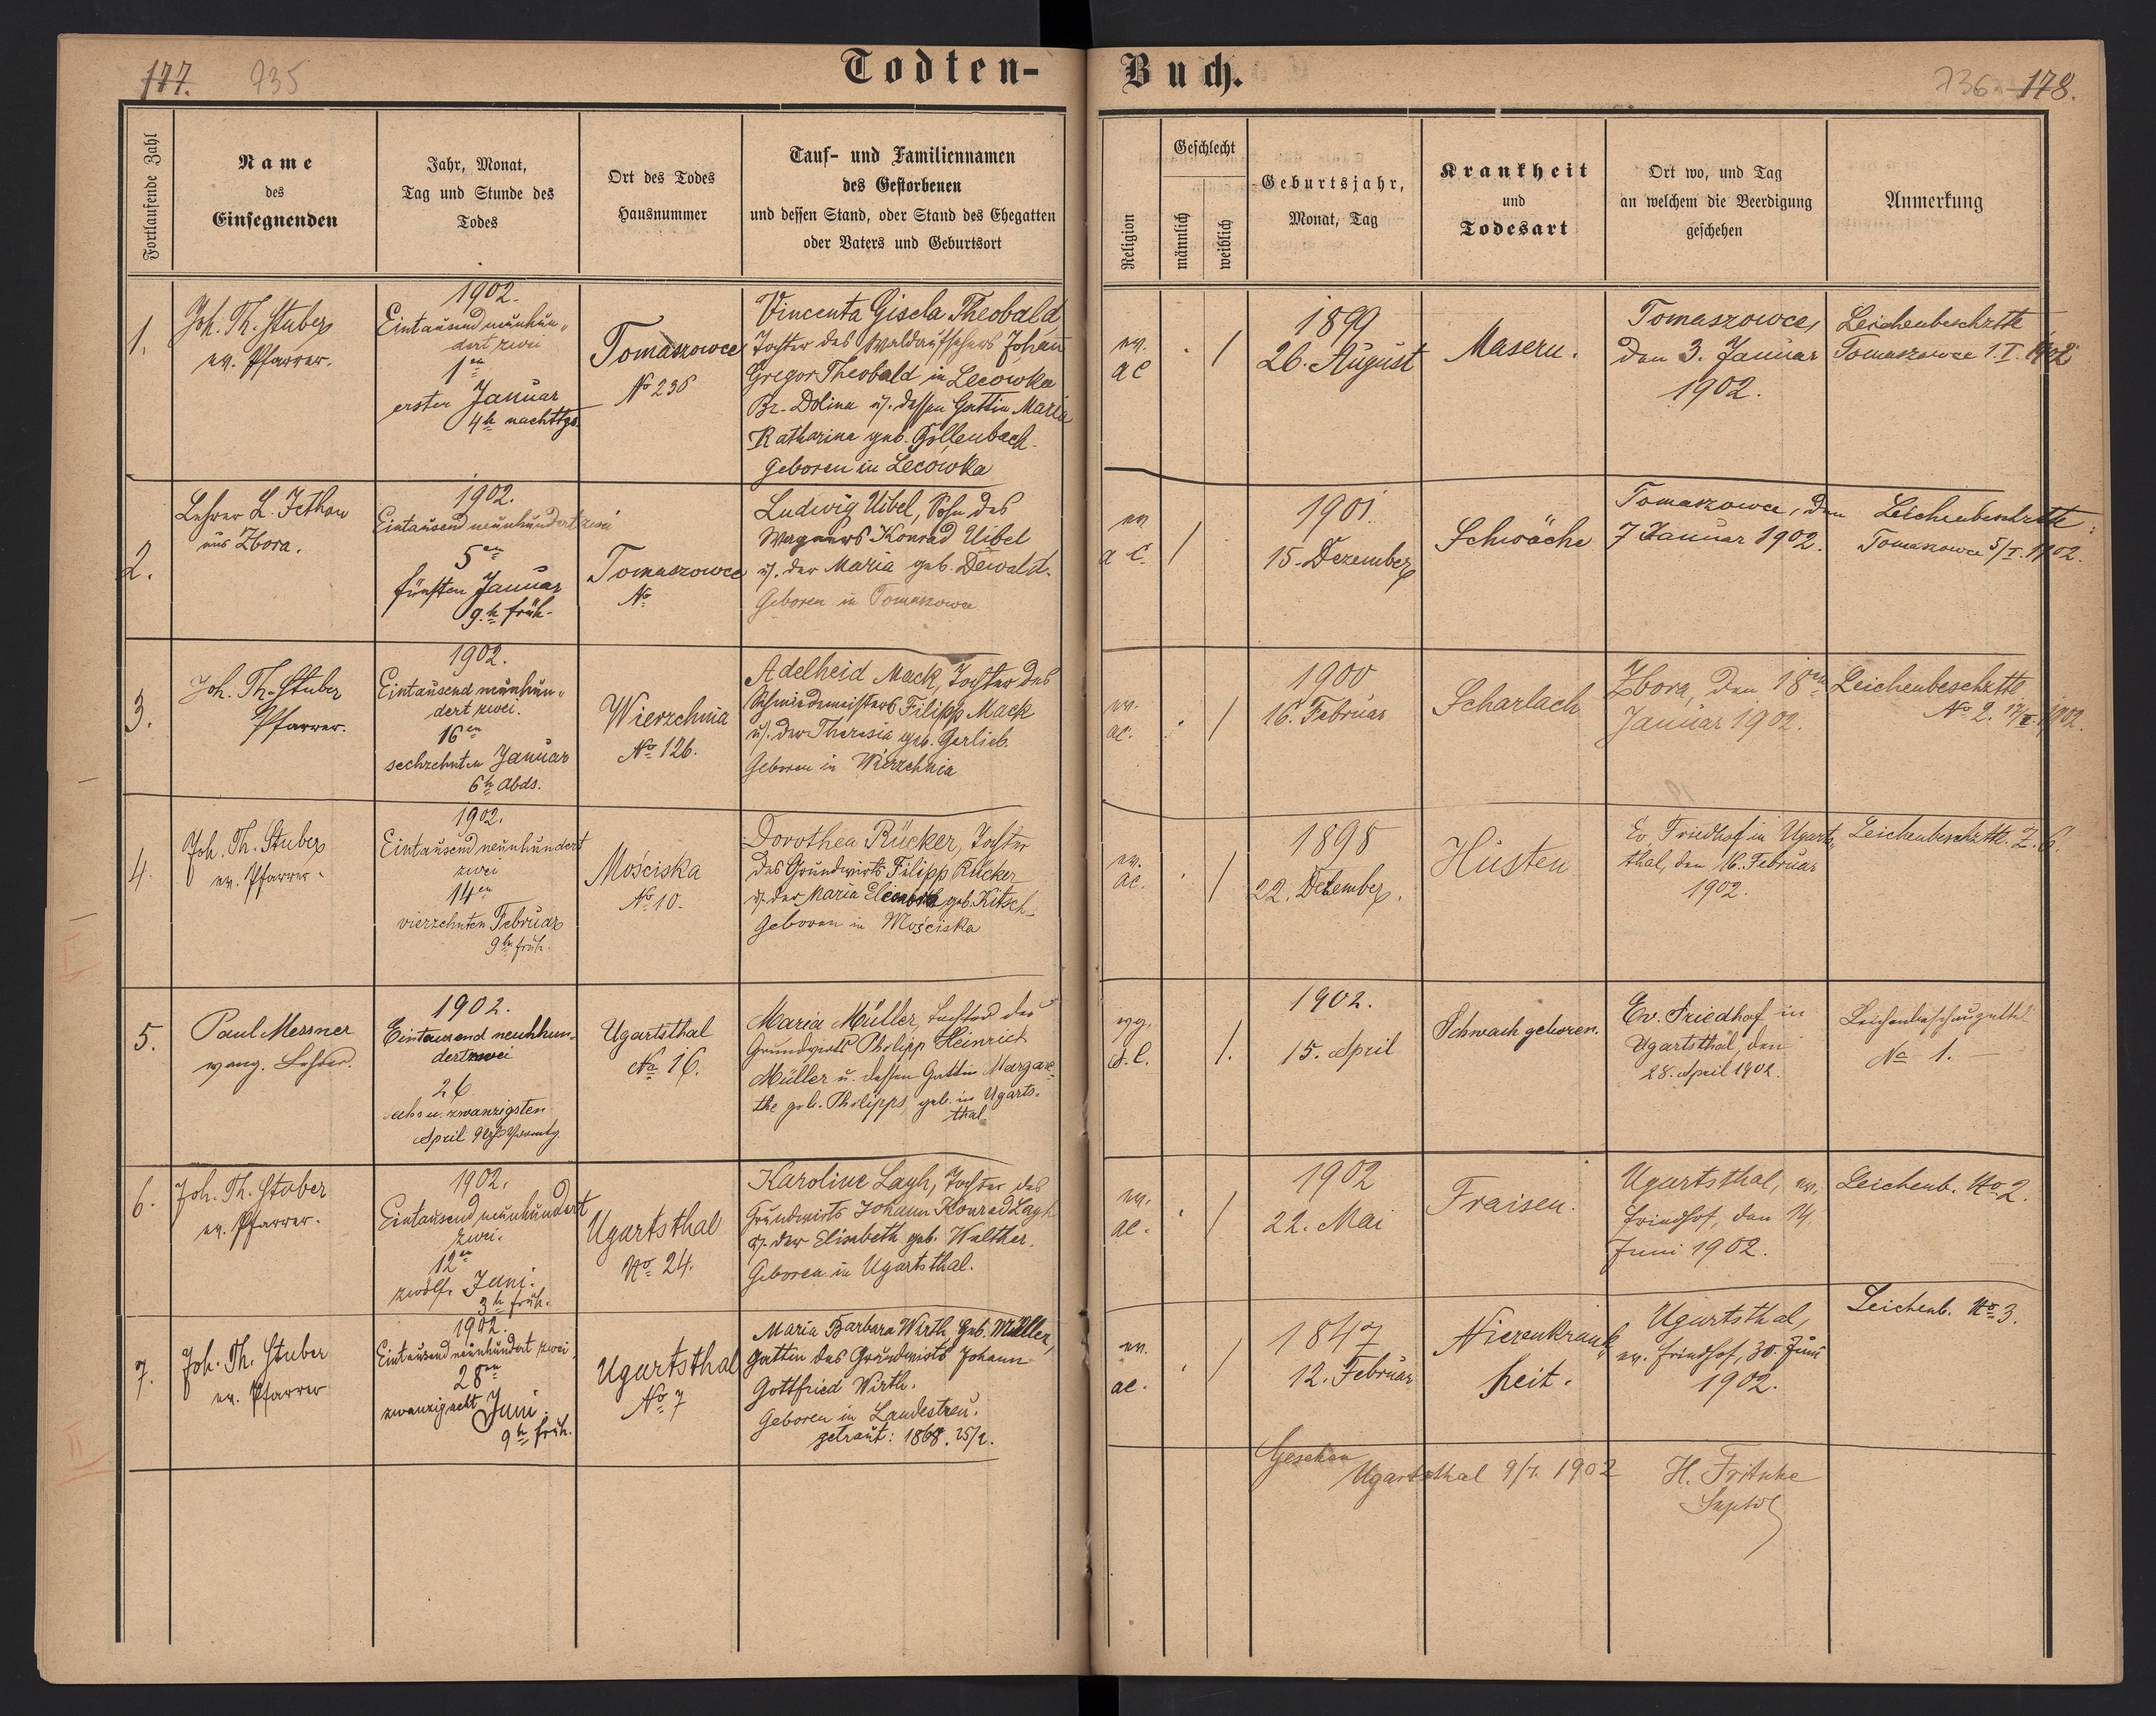 177. 735
Todten-
Fortlaufende Zahl
Name
des
Einsegnenden
Jahr, Monat,
Tag und Stunde des
Todes
Ort des Todes
Hausnummer
Tauf- und Familiennamen
des Gestorbenen
und dessen Stand, oder Stand des Ehegatten
oder Vaters und Geburtsort
1.
Joh. Th. Stuber
ev. Pfarrer.
1902.
Eintausend neunhun-
dert zwei
1en
erster Januar
4h nachttgs.
Tomaszowce
No 236
Vincenta Gisela Theobald
Tochter des Waldaufsehers Johann
Gregor Theobald in Lecowka
Bz. Dolina u. dessen Gattin Maria
Katharina geb. Göllenbach
Geboren in Lecowka
2.
Lehrer L. Jethon
aus Zbora.
1902.
Eintausend neunhundert zwei
5en
fünften Januar
9.h früh.
Tomaszowce
No
Ludwig Uibel, Sohn des
Wagners Konrad Uibel
u. der Maria geb. Dewald.
Geboren in Tomaszowce
3.
Joh. Th. Stuber
Pfarrer.
1902.
Eintausend neunhun-
dert zwei.
16en
sechzehnten Januar
6h Abds.
Wierzchnia
No 126.
Adelheid Mack, Tochter des
Schmiedemeisters Filipp Mack
u. der Theresia geb. Gerlieb.
Geboren in Wierzchnia
4.
Joh. Th. Stuber
ev. Pfarrer.
1902.
Eintausend neunhundert
zwei
14en
vierzehnten Februar
9h früh.
Mościska
No 10.
Dorothea Rücker, Tochter
des Grundwirts Filipp Rücker
u. der Maria geb. Kitsch.
Geboren in Mościska
5.
Paul Messner
evang. Lehrer.
1902.
Eintausend neunhun-
dertzwei
26
sechs u. zwanzigsten
April 9 Uhr Vormttg.
Ugartsthal
No 16.
Maria Müller, Tochter des
Grundwirts Philipp Heinrich
Müller u. dessen Gattin Margare-
the geb. Philipps, geb. in Ugarts-
thal.
6.
Joh. Th. Stuber
ev. Pfarrer.
1902.
Eintausend neunhundert
zwei.
12en
zwölf. Juni.
3h früh.
Ugartsthal
No 24.
Karoline Lagh, Tochter des
Grundwirts Johann Konrad Lagh
u. der Elisabeth geb. Walther.
Geboren in Ugartsthal.
7.
Joh. Th. Stuber
ev. Pfarrer
1902.
Eintausend neunhundert zwei
28en
zwanzigacht Juni.
9h früh.
Ugartsthal
No 7
Maria Barbara Wirth, geb. Müller,
Gattin des Grundwirts Johann
Gottfried Wirth.
Geboren in Landestreu.
getraut: 1868. 25/2.
Buch.
736 178.
Religion
Geschlecht
männlich
weiblich
Geburtsjahr,
Monat, Tag
Krankheit
und
Todesart
Ort wo, und Tag
an welchem die Beerdigung
geschehen
Anmerkung
ev.
ac
. /
1899
26. August
Masern.
Tomaszowce,
den 3. Januar
1902.
Leichenbeschztte
Tomaszowce 1.I.1902
ev
a c.
/
1901.
15. Dezember
Schwäche
Tomaszowce, den
7 Januar 1902.
Leichenbeschztte
Tomaszowce 5/I.1902.
ev.
ac.
. /
1900
16. Februar
Scharlach
Zbora, den 18en
Januar 1902.
Leichenbeschztte
No 2. 17/I.1902.
ev.
ac.
. /
1898
22. Dezember.
Husten
Ev. Friedhof in Ugarts-
thal, den 16. Februar
1902.
Leichenbeschztte. Z. 6.
evg.
A.C.
1.
1902.
15. April
Schwach geboren.
Ev. Friedhof in
Ugartsthal, den
28. April 1902.
Leichenbeschauzettel
No 1. —
ev.
ac.
. /
1902
22. Mai
Fraisen.
Ugartsthal, ev.
Friedhof, den 14.
Juni 1902.
Leichenb. No 2.
ev.
ac.
. /
1847
12. Februar
Nierenkrank-
heit.
Ugartsthal,
ev. Friedhof, 30. Juni
1902.
Leichenb. No 3.
Gesehen
Ugartsthal 9/7. 1902
H. Fritsche